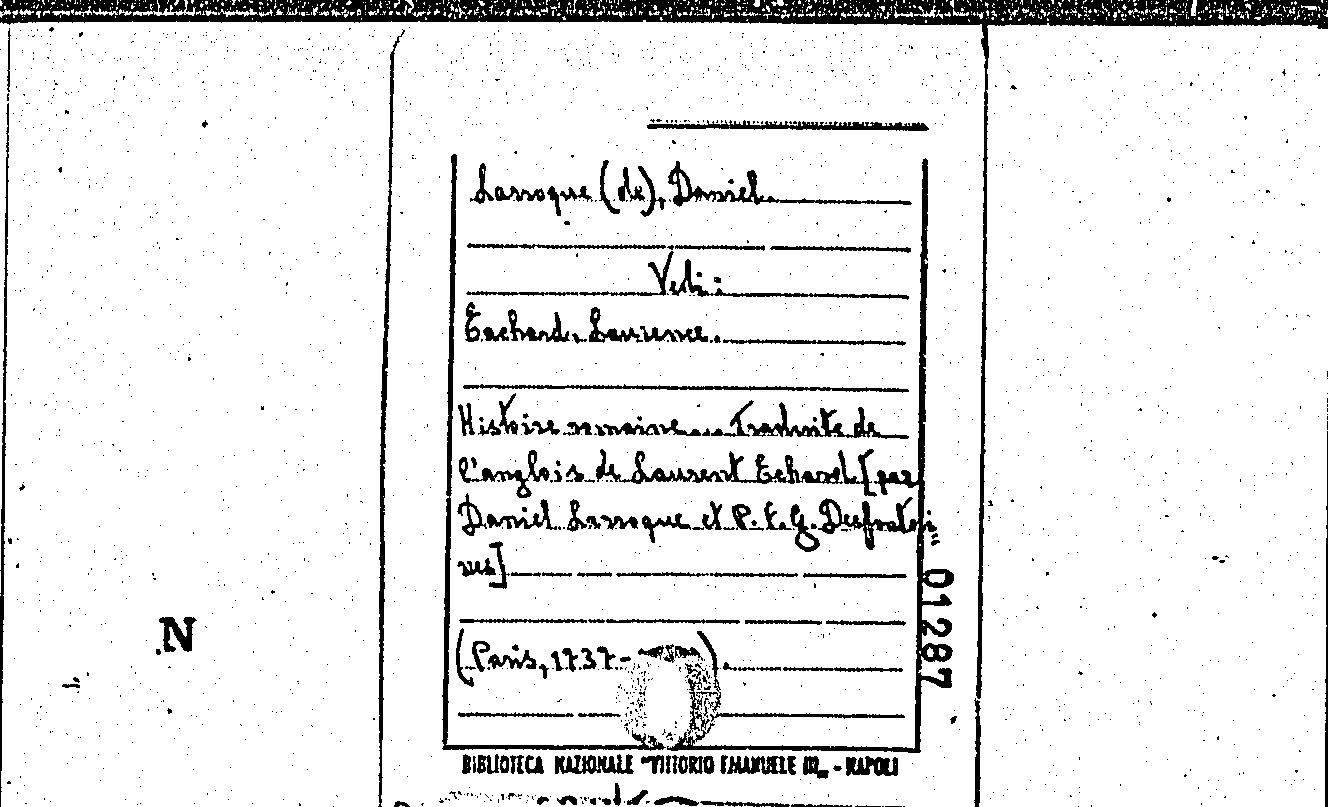 Larroque (de), Daniel.
Vedi:
Eachard, Laurence.
Histoire romaine... Traduite de
l'anglois de Laurent Echard [par
Daniel Larroque et P. F. G. Desfontai"
nes]
(Paris, 1737-
).
BIBLIOTECA NAZIONALE "VITTORIO EMANUELE III„ - NAPOLI
01287
N